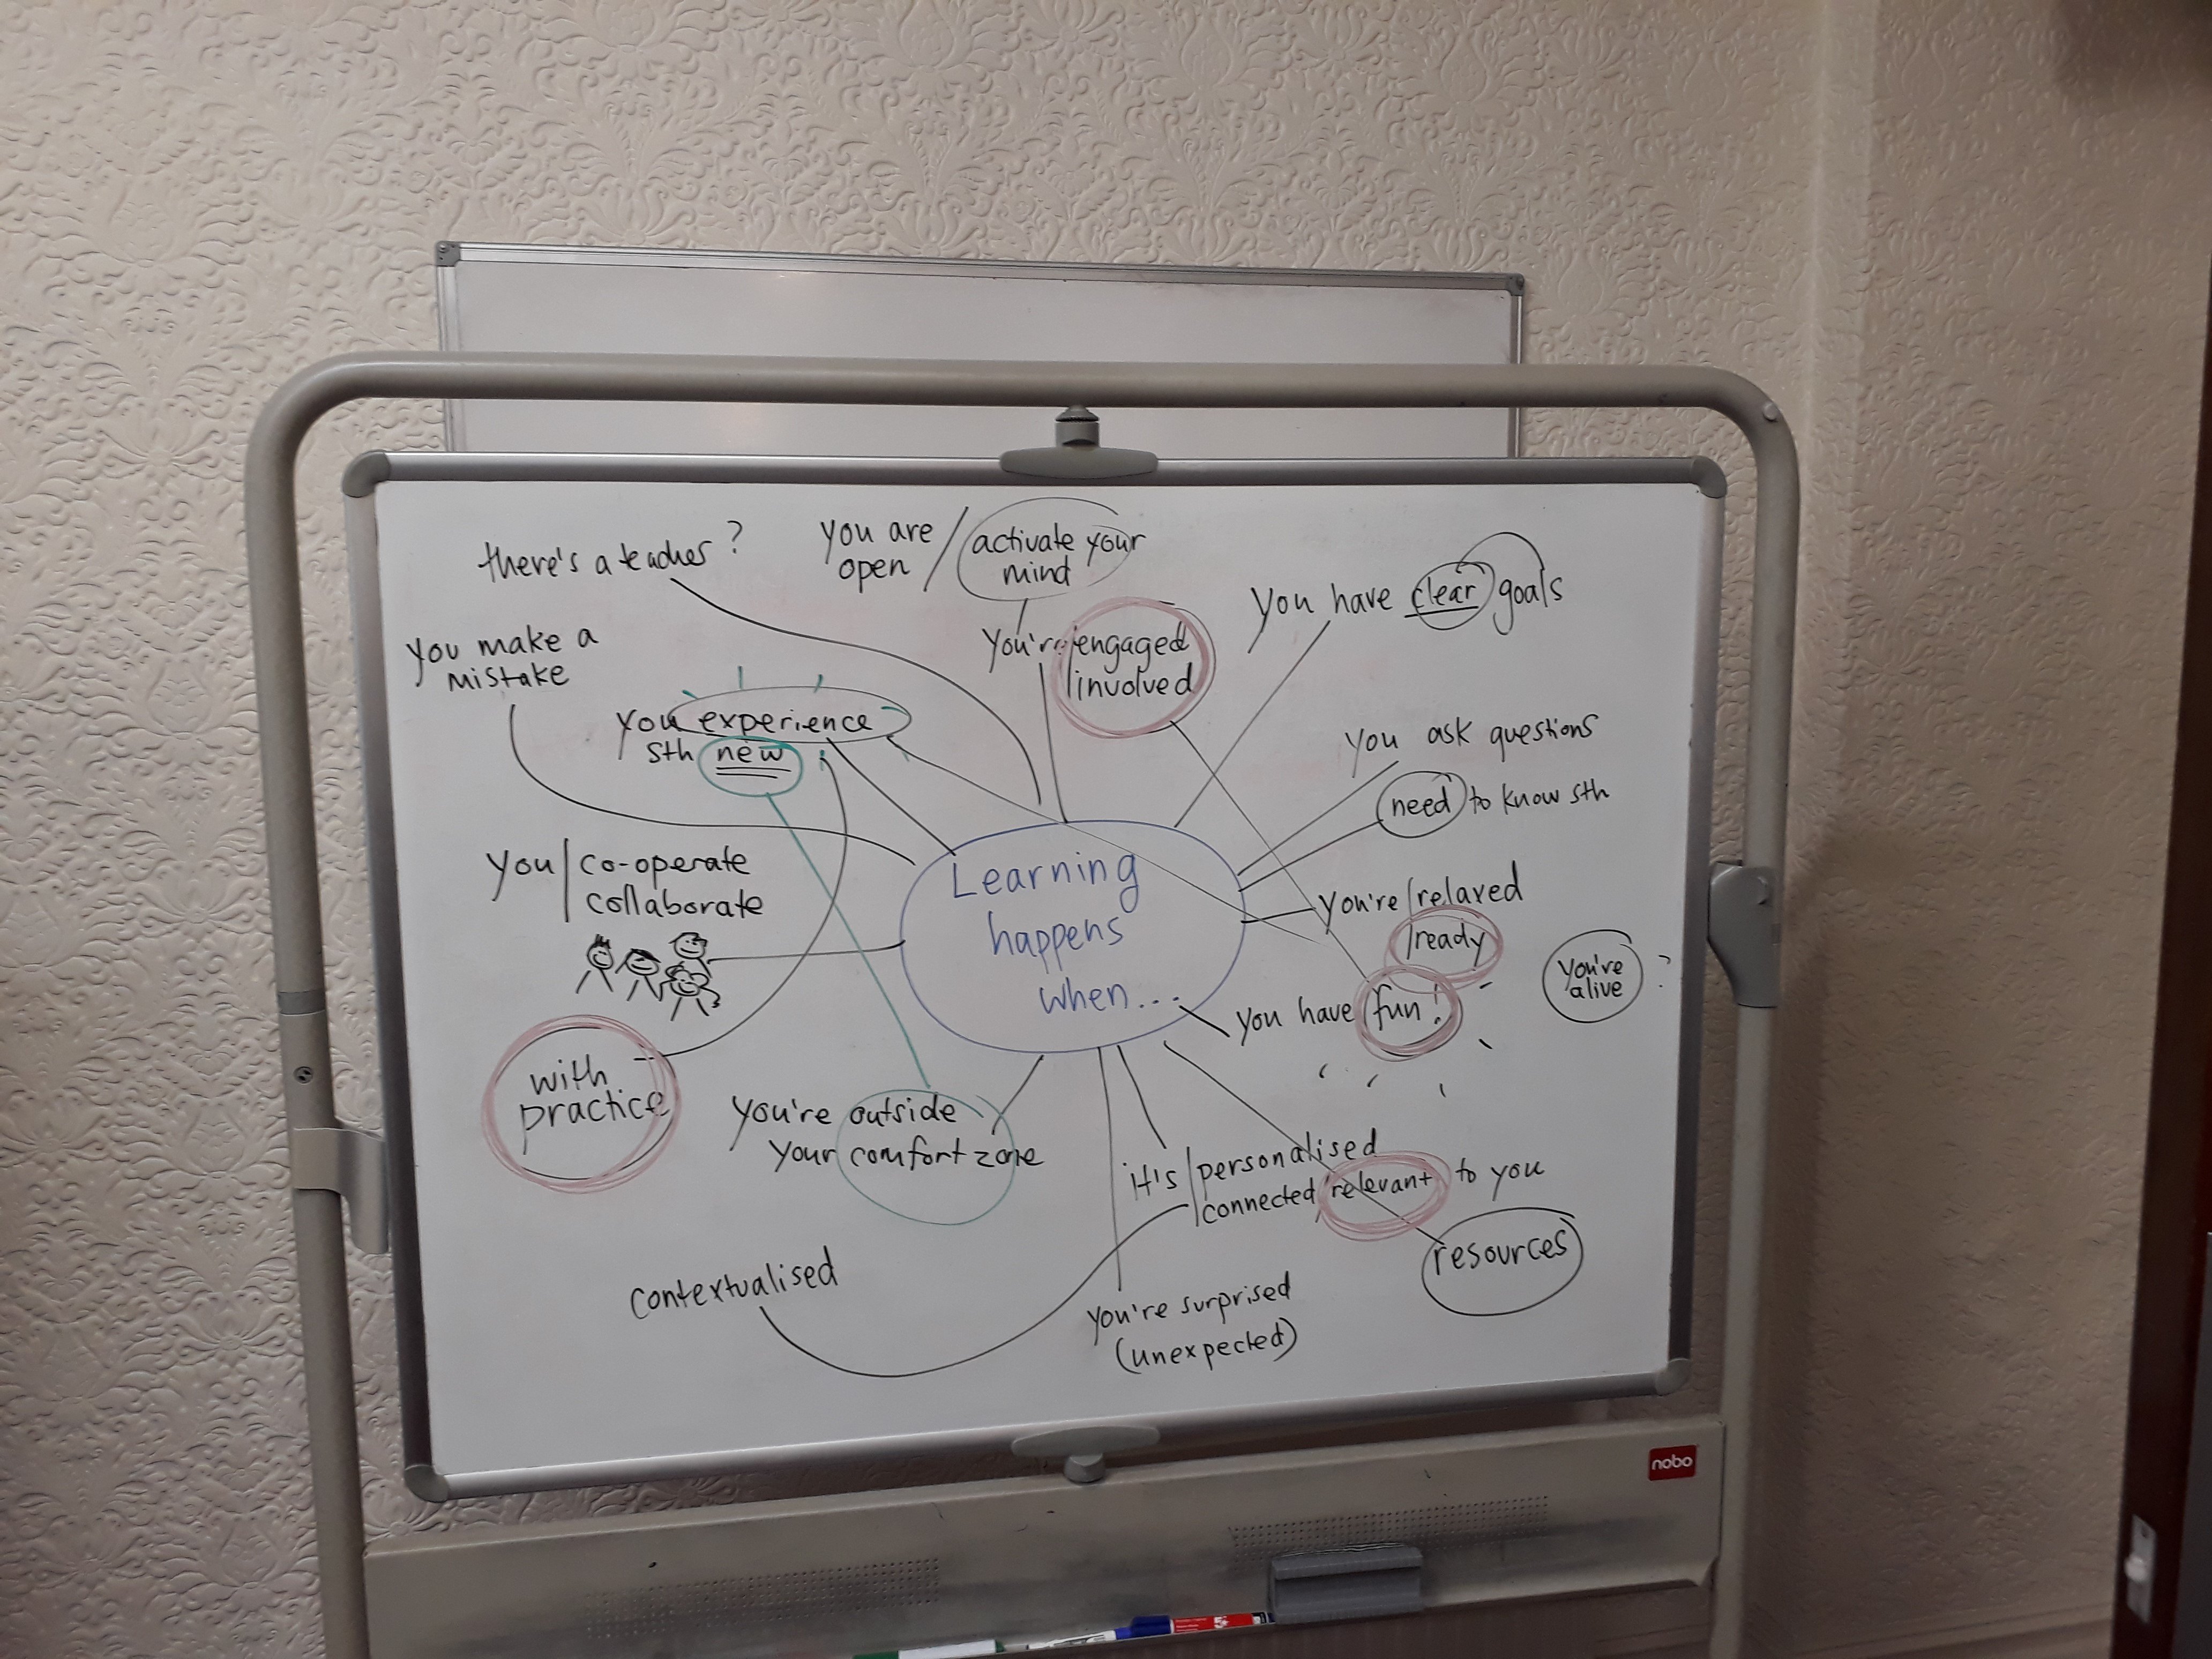 there's a teacher?
you are / activate your
open mind
you have clear goals
you make a
mistake
you're engaged
involved
you experience
sth new
you ask questions
need to know sth
you co-operate
collaborate
Learning
happens
when...
you're relaxed
ready
you're
alive ?
you have fun!
with
practice
you're outside
your comfort zone
it's personalised
connected relevant to you
resources
contextualised
you're surprised
(unexpected)
nobo